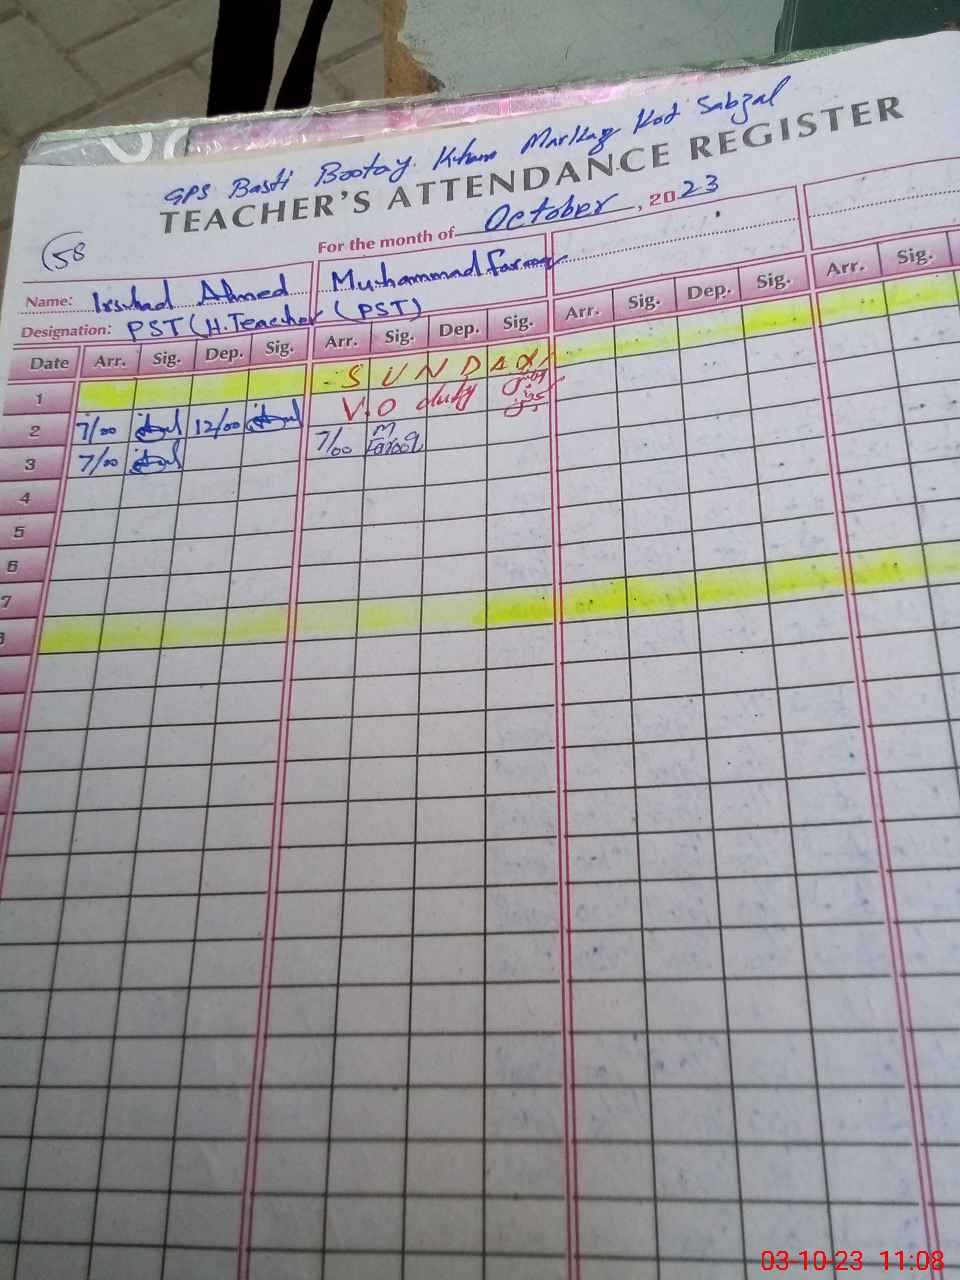 GPS Basti Bootay Khan Markaz Kot Sabzal
TEACHER'S ATTENDANCE REGISTER
For the month of October, 2023
58
Name: Irshad Ahmed Muhammad Farooq
Designation: PST (H.Teacher) (PST)
Date Arr. Sig. Dep. Sig. Arr. Sig. Dep. Sig. Arr. Sig. Dep. Sig. Arr. Sig.
1 SUNDAY
2 7/00 12/00 V.O duty
3 7/00 7/00 M Farooq
4
5
6
7
8
03-10-23 11:08